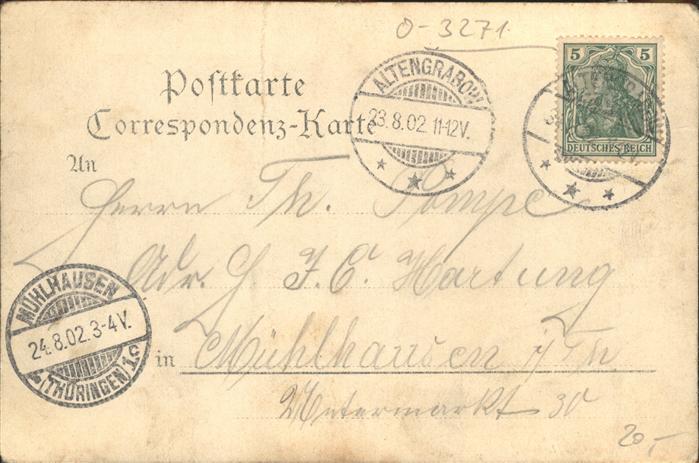 O-3271
5 5
DEUTSCHES REICH
Postkarte
Correspondenz-Karte
ALTENGRABOW
23.8.02.11-12V.
An
Herrn Th. Pompe
Adr. H. J. C. Hartung
MÜHLHAUSEN
24.8.02.3-4V.
(THÜRINGEN) 1c
in Mühlhausen i/Th
Untermarkt 30
20,-